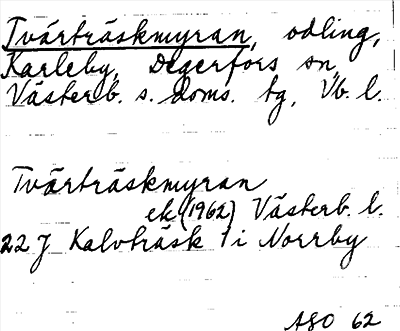 Tvärträskmyran, odling,
Karleby, Degerfors sn,
Västerb. s. doms. tg, Vb. l.
Tvärträskmyran
ek (1962) Västerb. l.
22 J Kalvträsk 1 i Norrby
ASO 62